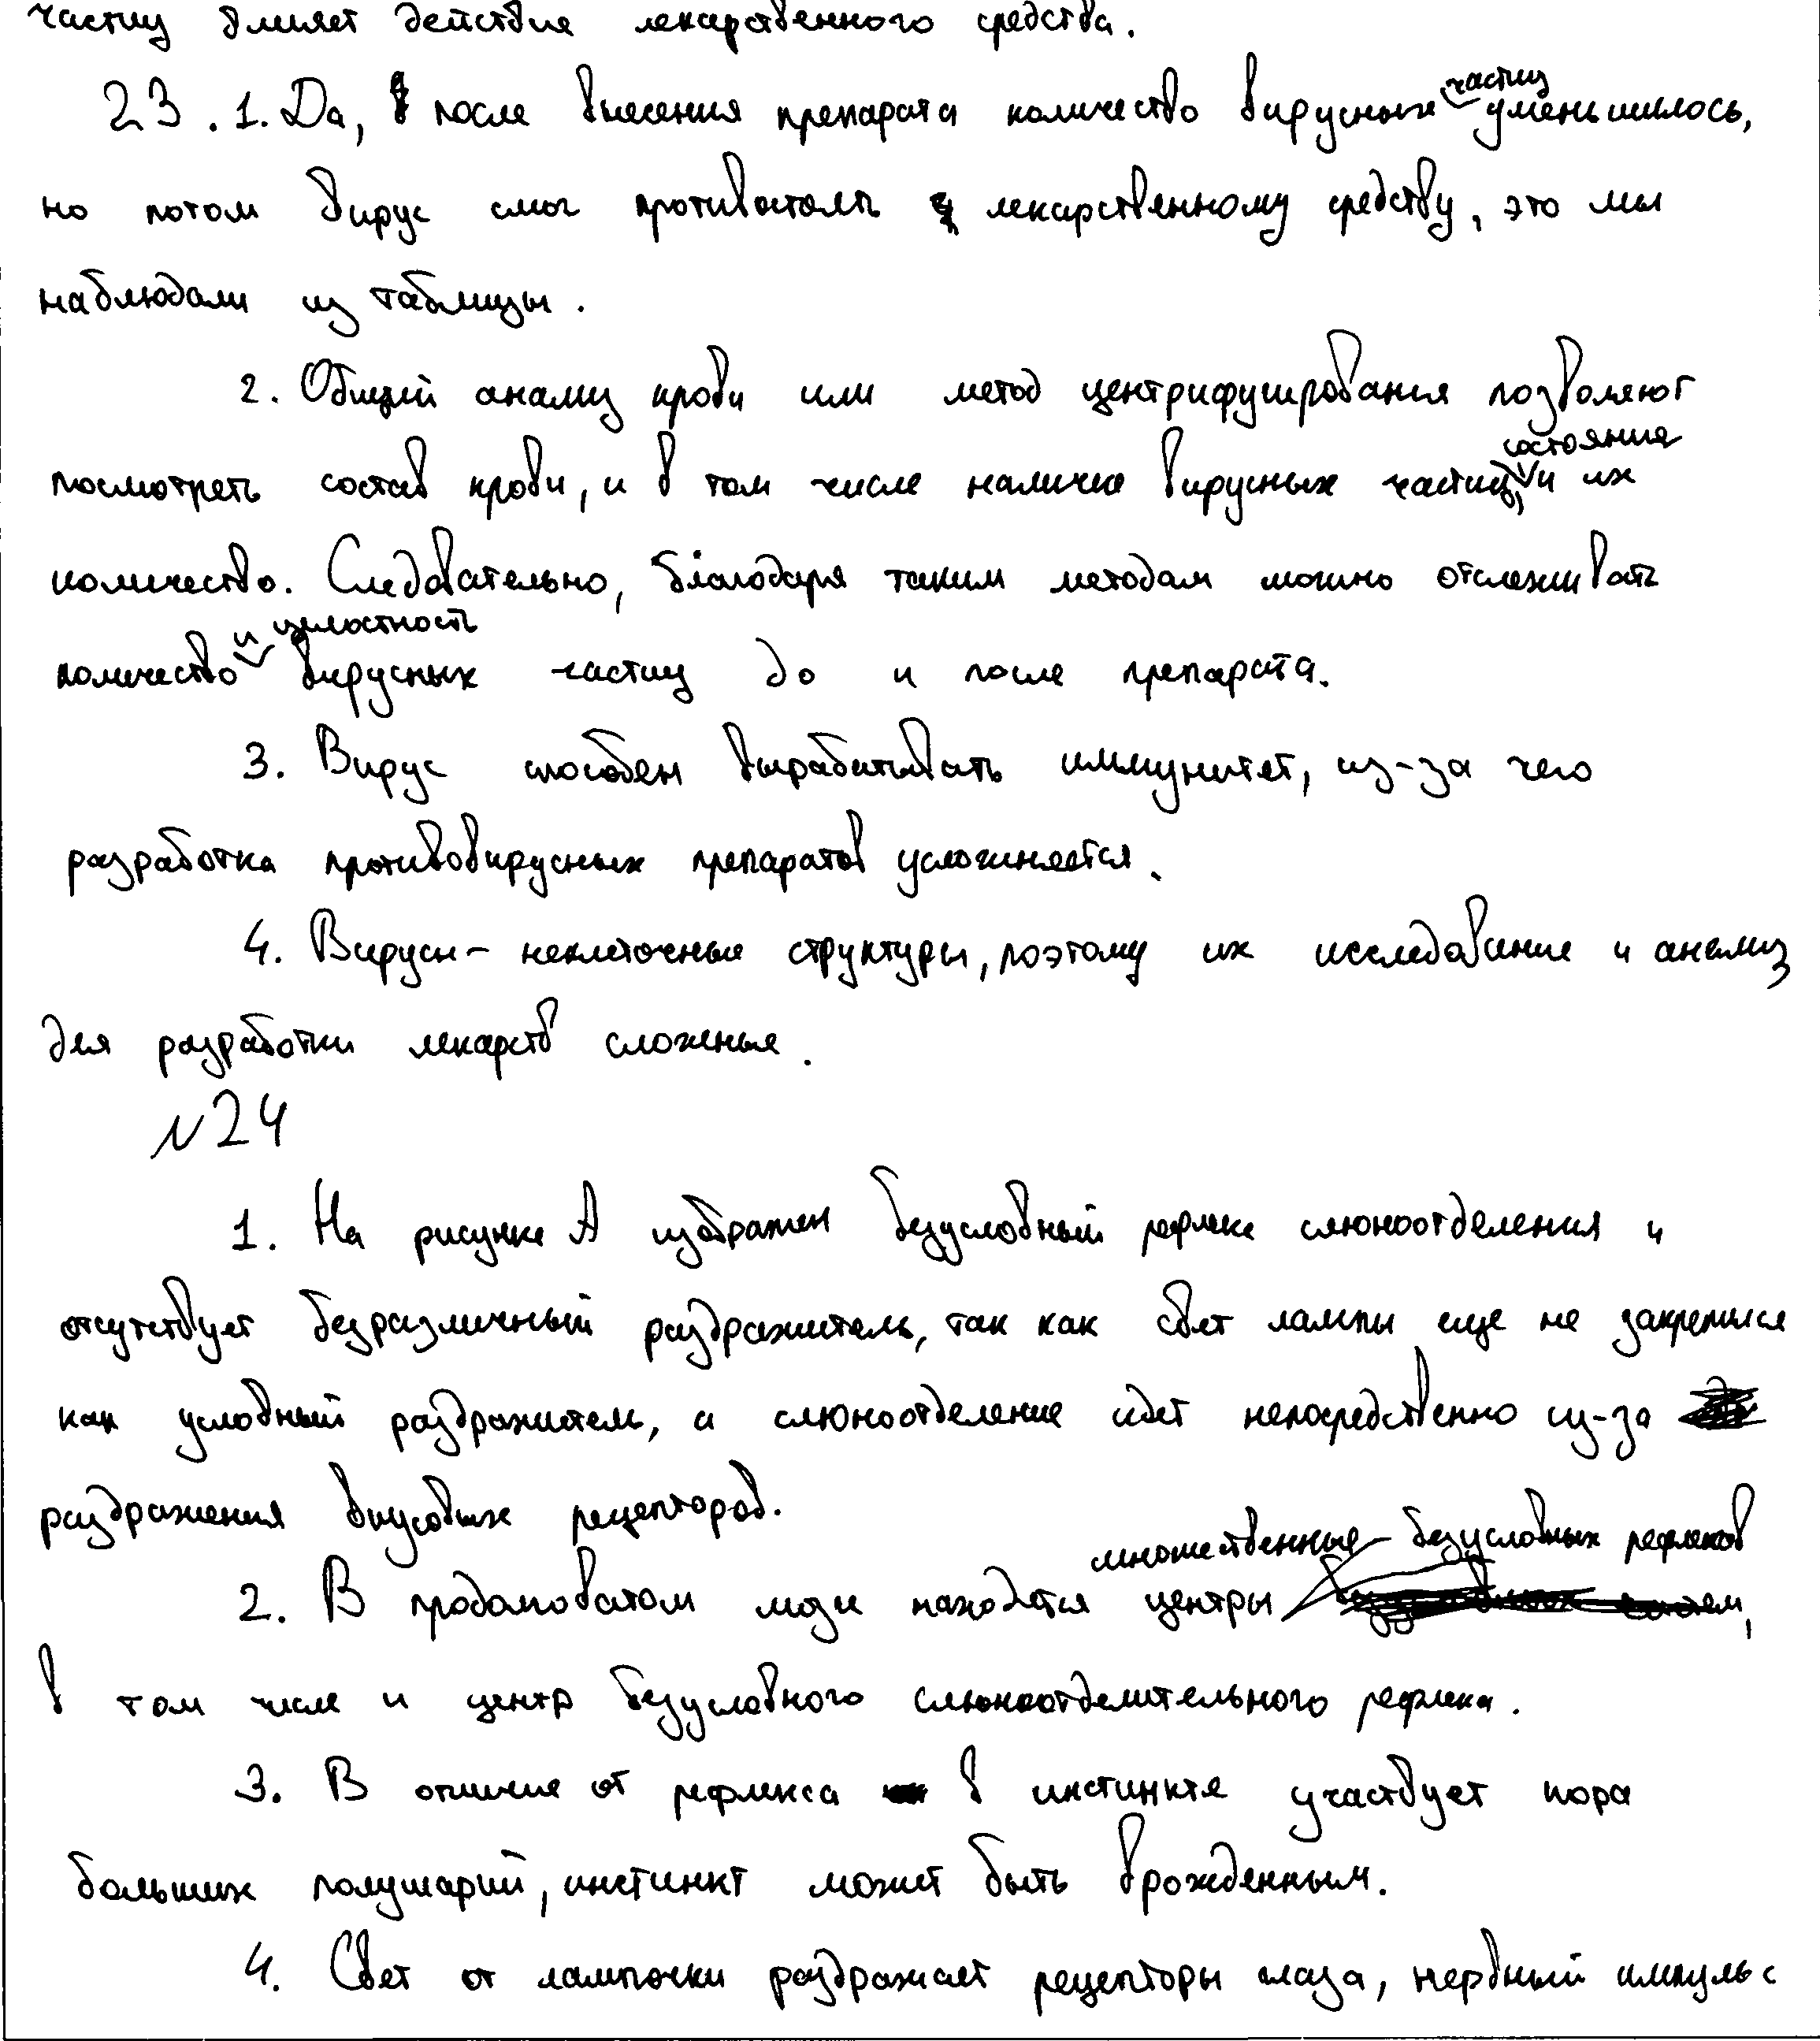 частиц влияет действие лекарственного средства.
23. 1. Да, после внесения препарата количество вирусных частиц уменьшилось,
но потом вирус смог противостоять лекарственному средству, это мы
наблюдали из таблицы.
2. Общий анализ крови или метод центрифугирования позволяют
посмотреть состав крови, и в том числе наличие вирусных частиц, состояние и их
количество. Следовательно, благодаря таким методам можно отслеживать
количество и целостность вирусных частиц до и после препарата.
3. Вирус способен вырабатывать иммунитет, из-за чего
разработка противовирусных препаратов усложняется.
4. Вирусы - неклеточные структуры, поэтому их исследование и анализ
для разработки лекарств сложенье.
№24
1. На рисунке А изображен безусловный рефлекс слюноотделения и
отсутствует безразличный раздражитель, так как свет лампы еще не закрепился
как условный раздражитель, а слюноотделение идет непосредственно из-за
раздражения вкусовых рецепторов.
2. В продолговатом мозге находятся множественные центры безусловных рефлексов,
в том числе и центр безусловного слюноотделительного рефлекса.
3. В отличие от рефлекса в инстинкте участвует кора
больших полушарий, инстинкт может быть врожденным.
4. Свет от лампочки раздражает рецепторы глаза, нервный импульс